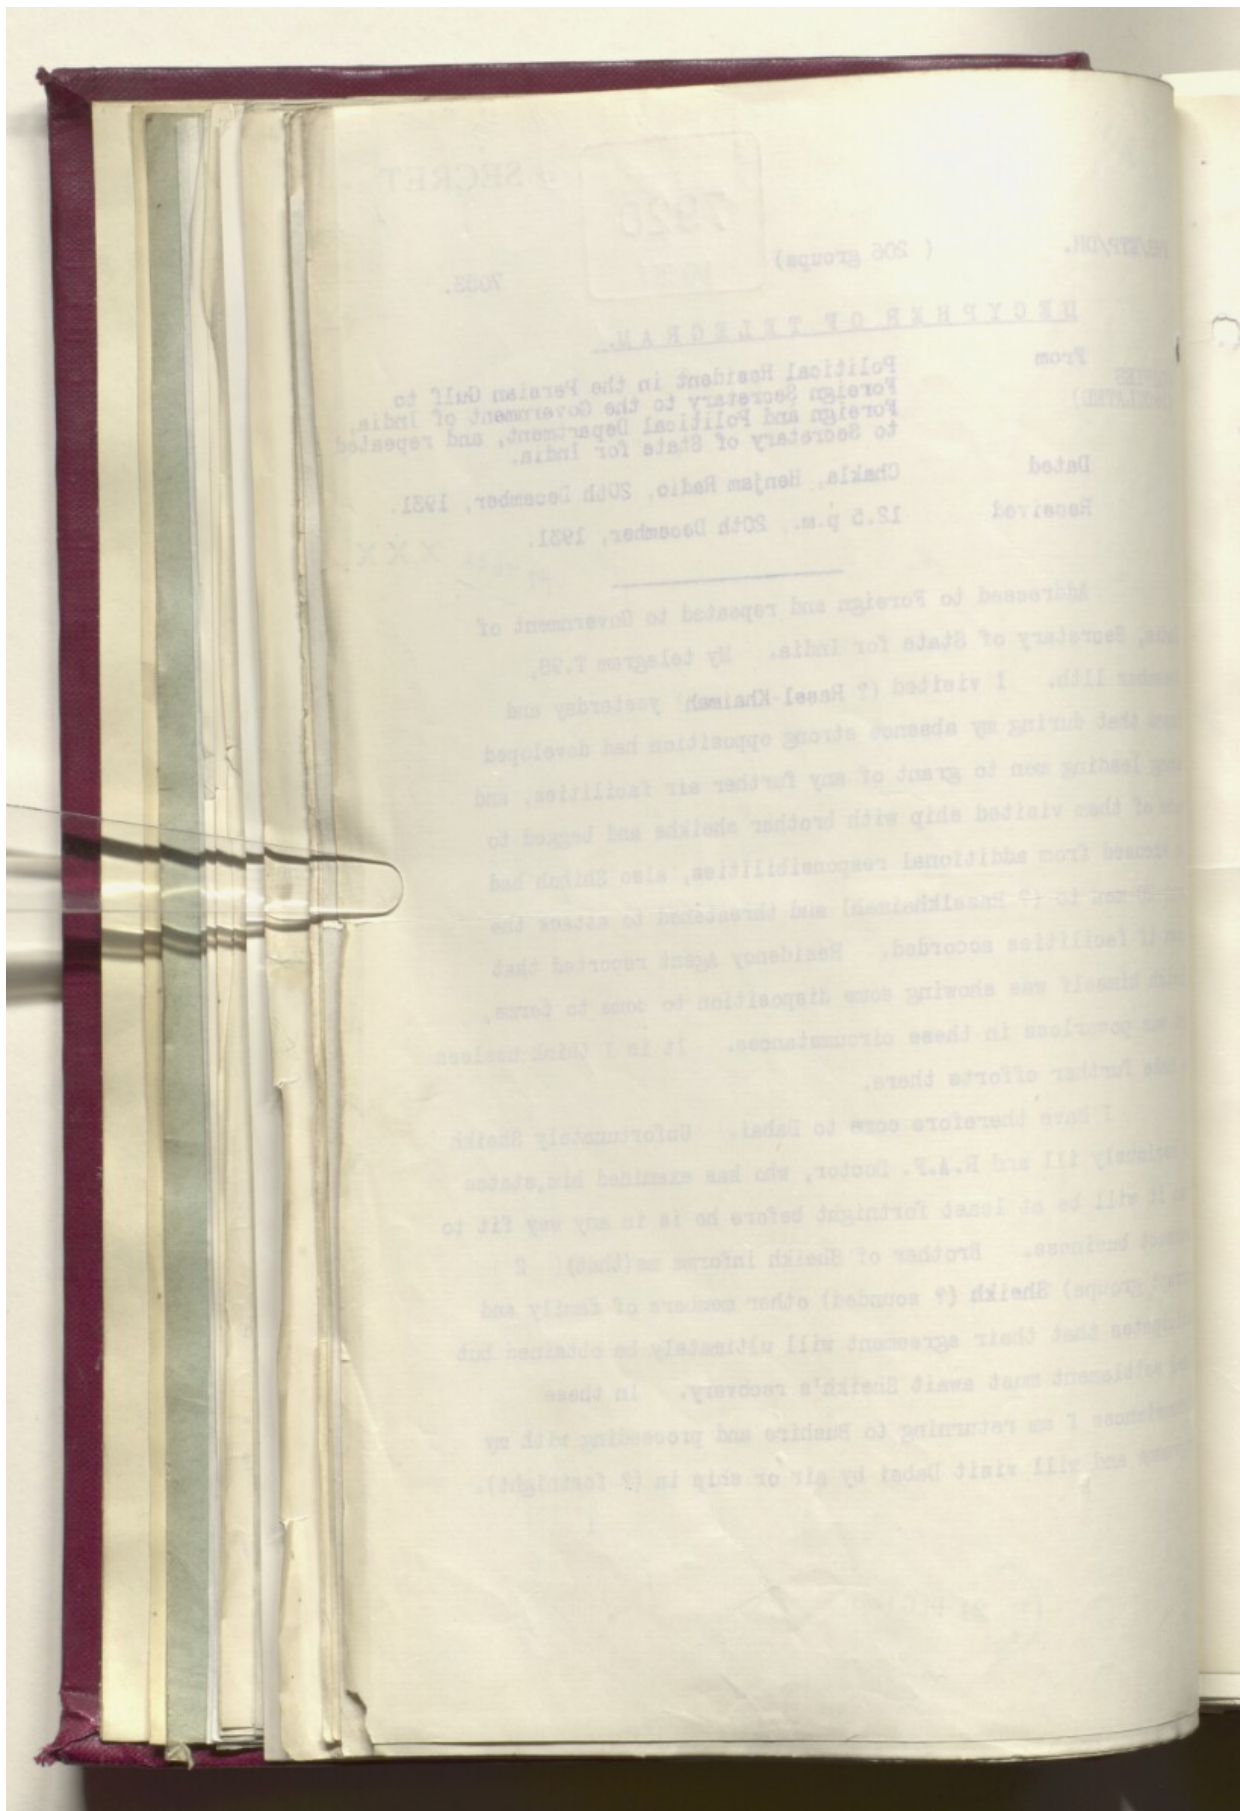 SECRET
7920
( 206 groups)
7083.
DECYPHER OF TELEGRAM.
From Political Resident in the Persian Gulf to
Foreign Secretary to the Government of India,
Foreign and Political Department, and repeated
to Secretary of State for India.
Dated Chakla, Henjam Radio, 20th December, 1931.
Received 12.5 p.m., 20th December, 1931.
XXX
Addressed to Foreign and repeated to Government of
Secretary of State for India. My telegram T.98,
11th. I visited (? Rasel-Khaimah) yesterday and
that during my absence strong opposition had developed
leading men to grant of any further air facilities, and
of them visited ship with brother sheikhs and begged to
excused from additional responsibilities, also Shihuh had
men to (? Rasalkhaimah) and threatened to attack the
if facilities accorded. Residency Agent reported that
himself was showing some disposition to come to terms,
powerless in these circumstances. It is I think useless
further efforts there.
I have therefore come to Dabai. Unfortunately Sheikh
ill and R.A.F. Doctor, who has examined him, states
it will be at least fortnight before he is in any way fit to
business. Brother of Sheikh informs me (that) ( 2
groups) Sheikh (? sounded) other members of family and
that their agreement will ultimately be obtained but
settlement must await Sheikh's recovery. In these
I am returning to Bushire and proceeding with my
and will visit Dabai by air or ship in (? fortnight).